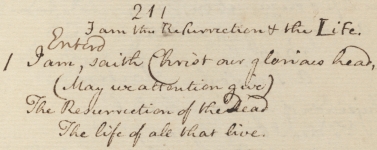 211
I am the Resurrection & the Life.
Enterd
1 I am, saith Christ our glorious head,
(May we attention give)
The Resurrection of the Dead
The life of all that live.